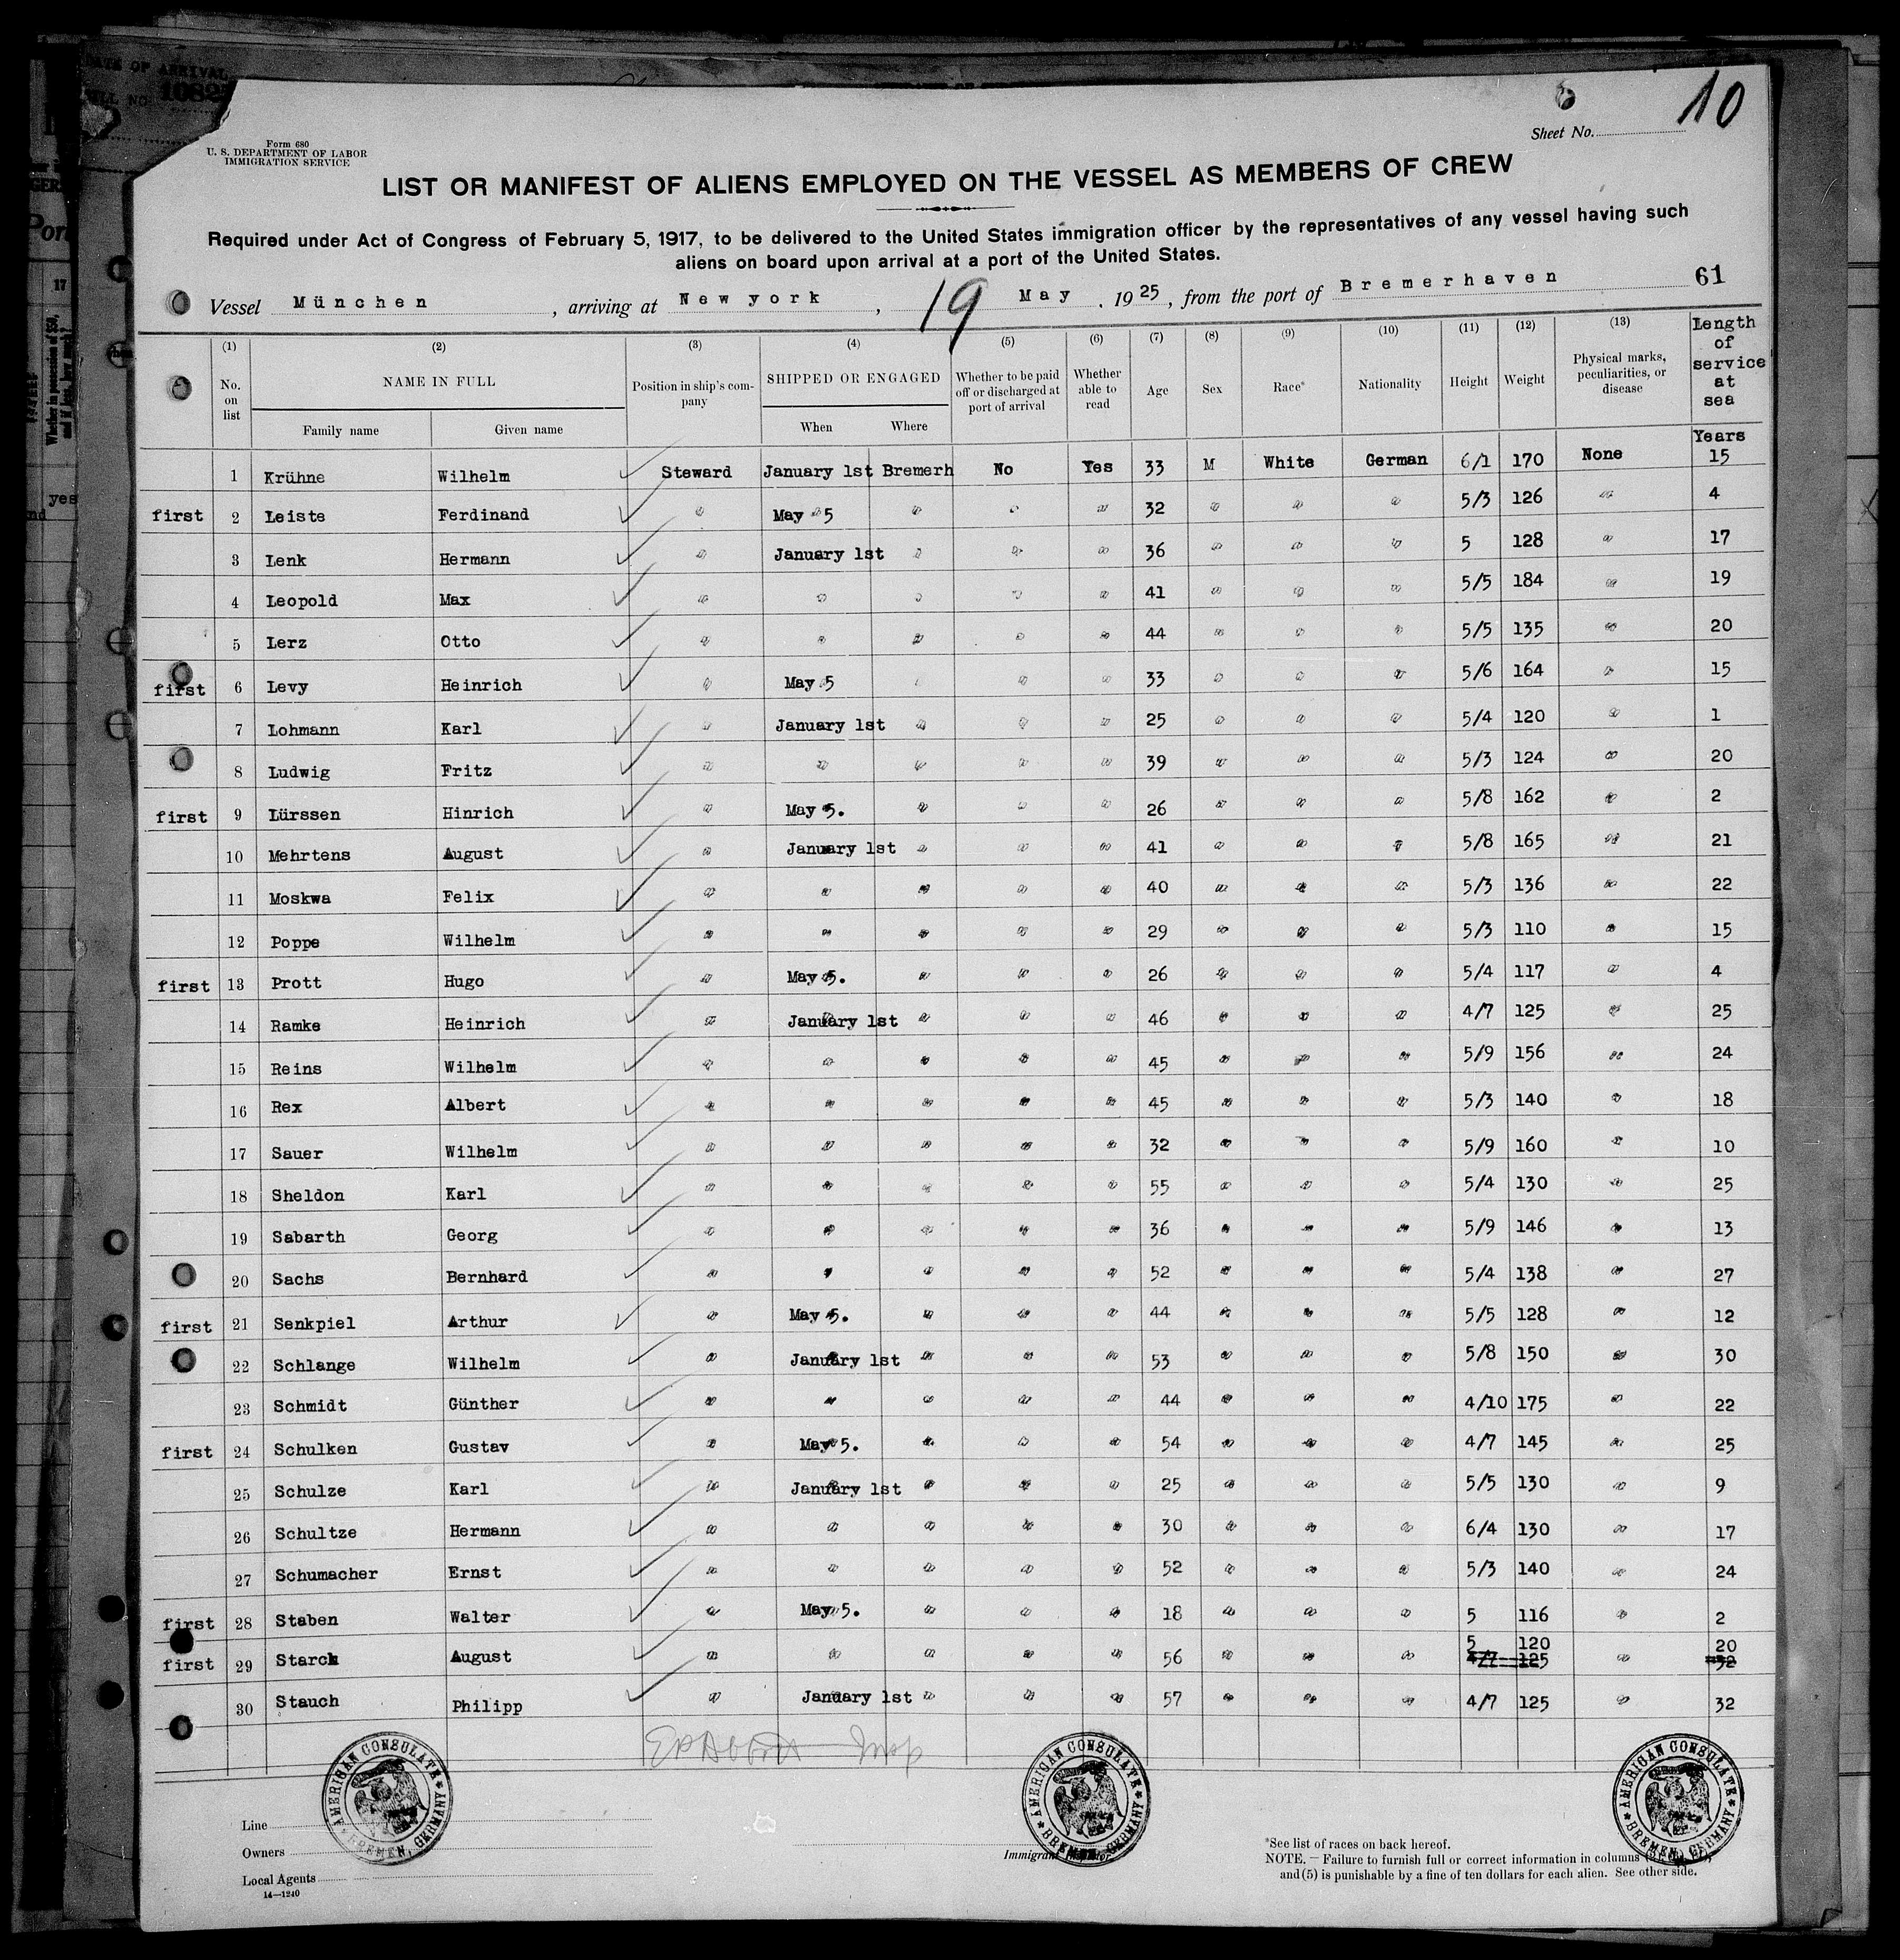 DATE OF ARRIVAL
1082
Form 680
U. S. DEPARTMENT OF LABOR
IMMIGRATION SERVICE
Sheet No. 10
LIST OR MANIFEST OF ALIENS EMPLOYED ON THE VESSEL AS MEMBERS OF CREW
Required under Act of Congress of February 5, 1917, to be delivered to the United States immigration officer by the representatives of any vessel having such
aliens on board upon arrival at a port of the United States.
Vessel München, arriving at New york, 19 May, 1925, from the port of Bremerhaven 61
(1) (2) (3) (4) (5) (6) (7) (8) (9) (10) (11) (12) (13)
No. on list NAME IN FULL Family name Given name Position in ship's company SHIPPED OR ENGAGED When Where Whether to be paid off or discharged at port of arrival Whether able to read Age Sex Race* Nationality Height Weight Physical marks, peculiarities, or disease Length of service at sea
Years
1 Krühne Wilhelm Steward January 1st Bremerh No Yes 33 M White German 6/1 170 None 15
first 2 Leiste Ferdinand " May 5 " " " 32 " " " 5/3 126 " 4
3 Lenk Hermann " January 1st " " " 36 " " " 5 128 " 17
4 Leopold Max " " " " " 41 " " " 5/5 184 " 19
5 Lerz Otto " " " " " 44 " " " 5/5 135 " 20
first 6 Levy Heinrich " May 5 " " " 33 " " " 5/6 164 " 15
7 Lohmann Karl " January 1st " " " 25 " " " 5/4 120 " 1
8 Ludwig Fritz " " " " " 39 " " " 5/3 124 " 20
first 9 Lürssen Hinrich " May 5. " " " 26 " " " 5/8 162 " 2
10 Mehrtens August " January 1st " " " 41 " " " 5/8 165 " 21
11 Moskwa Felix " " " " " 40 " " " 5/3 136 " 22
12 Poppe Wilhelm " " " " " 29 " " " 5/3 110 " 15
first 13 Prott Hugo " May 5. " " " 26 " " " 5/4 117 " 4
14 Ramke Heinrich " January 1st " " " 46 " " " 4/7 125 " 25
15 Reins Wilhelm " " " " " 45 " " " 5/9 156 " 24
16 Rex Albert " " " " " 45 " " " 5/3 140 " 18
17 Sauer Wilhelm " " " " " 32 " " " 5/9 160 " 10
18 Sheldon Karl " " " " " 55 " " " 5/4 130 " 25
19 Sabarth Georg " " " " " 36 " " " 5/9 146 " 13
20 Sachs Bernhard " " " " " 52 " " " 5/4 138 " 27
first 21 Senkpiel Arthur " May 5. " " " 44 " " " 5/5 128 " 12
22 Schlange Wilhelm " January 1st " " " 53 " " " 5/8 150 " 30
23 Schmidt Günther " " " " " 44 " " " 4/10 175 " 22
first 24 Schulken Gustav " May 5. " " " 54 " " " 4/7 145 " 25
25 Schulze Karl " January 1st " " " 25 " " " 5/5 130 " 9
26 Schultze Hermann " " " " " 30 " " " 6/4 130 " 17
27 Schumacher Ernst " " " " " 52 " " " 5/3 140 " 24
first 28 Staben Walter " May 5. " " " 18 " " " 5 116 " 2
first 29 Starck August " " " " " 56 " " " 5 120 " 20
4/7 125 32
30 Stauch Philipp " January 1st " " " 57 " " " 4/7 125 " 32
AMERICAN CONSULATE BREMEN, GERMANY
AMERICAN CONSULATE BREMEN, GERMANY
AMERICAN CONSULATE BREMEN, GERMANY
Line
Owners
Local Agents
14—1240
Immigrant Inspector
*See list of races on back hereof.
NOTE.—Failure to furnish full or correct information in columns
and (5) is punishable by a fine of ten dollars for each alien. See other side.